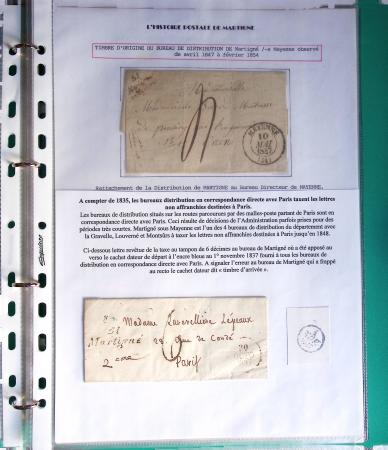 L'HISTOIRE POSTALE DE MARTIGNE
TIMBRE D'ORIGINE DU BUREAU DE DISTRIBUTION DE Martigné /-s Mayenne observé
de avril 1847 à février 1854
MAYENNE
10
MAI
(51)
Rattachement de la Distribution de MARTIGNE au Bureau Directeur de MAYENNE.
A compter de 1835, les bureaux distribution en correspondance directe avec Paris taxent les lettres
non affranchies destinées à Paris.
Les bureaux de distribution situés sur les routes parcourues par des malles-poste partant de Paris sont en
correspondance directe avec Paris. Ceci résulte de décisions de l'Administration parfois prises pour des
périodes très courtes. Martigné sous Mayenne est l'un des 4 bureaux de distribution du département avec
la Gravelle, Louverné et Montsûrs à taxer les lettres non affranchies destinées à Paris jusqu'en 1848.
Ci-dessous lettre revêtue de la taxe au tampon de 6 décimes au bureau de Martigné où a été apposé au
verso le cachet dateur de départ à l'encre bleue au 1° novembre 1837 fourni à tous les bureaux de
distribution en correspondance directe avec Paris. A signaler l'erreur au bureau de Martigné qui a frappé
au recto le cachet dateur dit « timbre d'arrivée ».
Madame Lareveillière Lépeaux
51
Martigné 28 rue de Condé
Paris